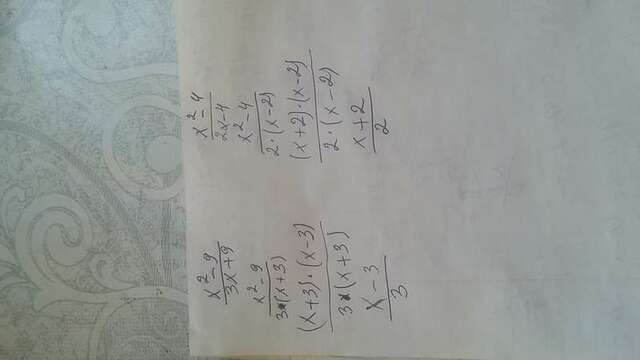 x²-9 / 3x+9
x²-9 / 3·(x+3)
(x+3)·(x-3) / 3·(x+3)
x-3 / 3
x²-4 / 2x-4
x²-4 / 2·(x-2)
(x+2)·(x-2) / 2·(x-2)
x+2 / 2